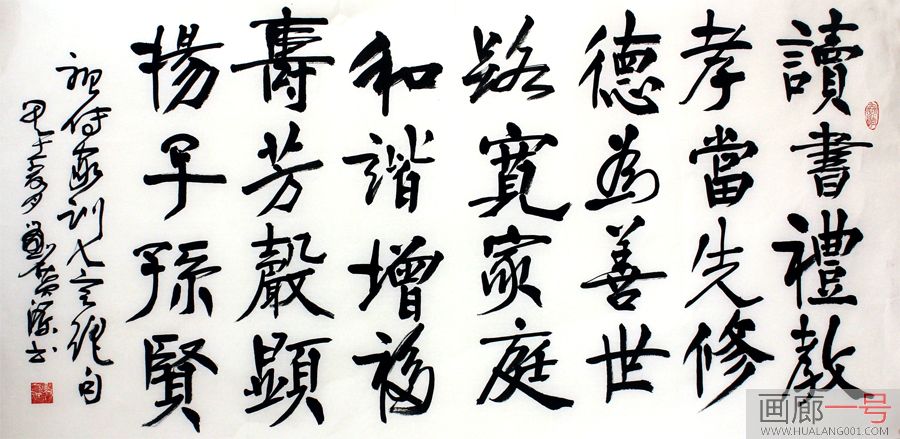 讀書禮教
孝當先修
德為善世
路寬家庭
和諧增福
壽芳聲顯
揚子孫賢
祖傳家訓七言绝句
画廊一号
WWW.HUALANG001.COM